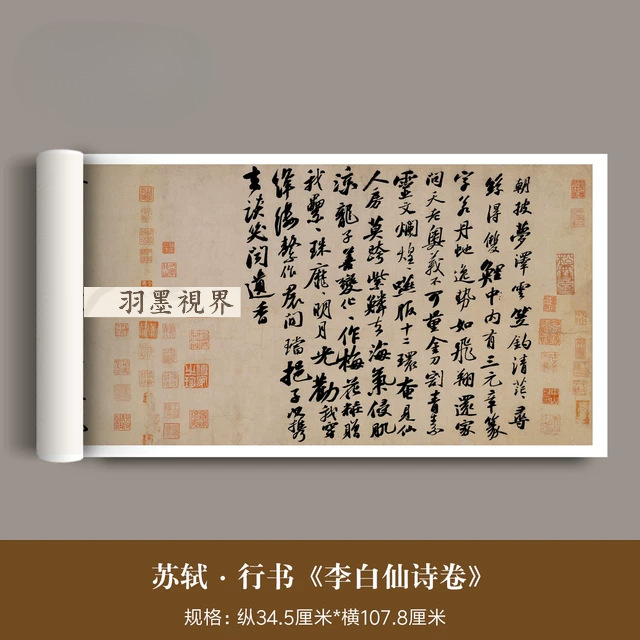 朝披夢澤雲笠釣清茫〻尋
絲得雙鯉中内有三元章篆
字若丹蛇逸勢如飛翔還家
問天老奥義不可量金刀割青素
靈文爛煌〻嚥服十二環奄見仙
人房莫跨紫鱗去海氣侵肌
涼龍子善變化〻作梅花粧贈
我纍〻珠靡〻明月光勸我穿
絳縷繫作裙間璫挹子以攜
去談笑聞遺香
羽墨視界
苏轼·行书《李白仙诗卷》
规格：纵34.5厘米*横107.8厘米